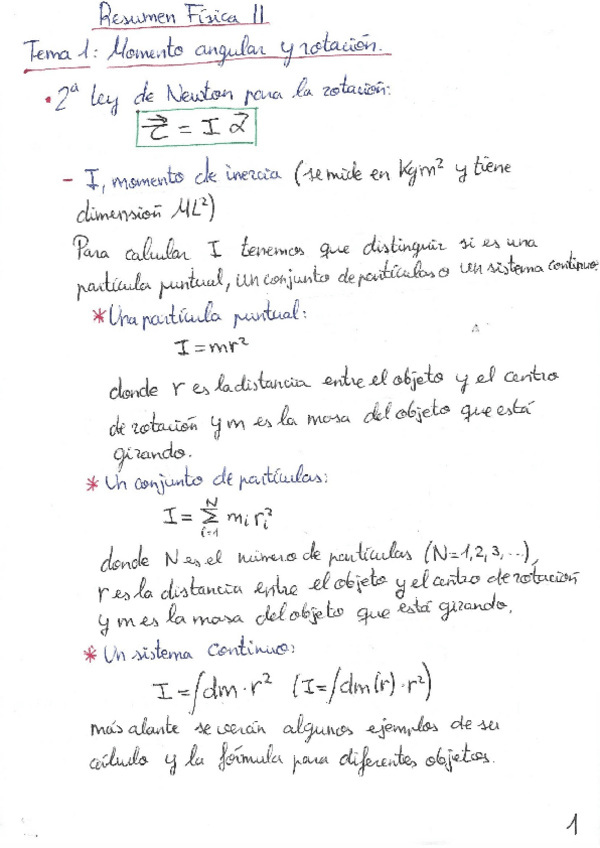 Resumen Física II
Tema 1: Momento angular y rotación.
• 2ª Ley de Newton para la rotación:
τ⃗ = I α⃗
- I, momento de inercia (se mide en Kgm² y tiene
dimensión ML²)
Para calcular I tenemos que distinguir si es una
partícula puntual, un conjunto de partículas o un sistema continuo:
* Una partícula puntual:
I = mr²
donde r es la distancia entre el objeto y el centro
de rotación y m es la masa del objeto que está
girando.
* Un conjunto de partículas:
I = Σ_{i=1}^{N} m_i r_i²
donde N es el número de partículas (N=1,2,3,...),
r es la distancia entre el objeto y el centro de rotación
y m es la masa del objeto que está girando.
* Un sistema continuo:
I = ∫dm · r² (I = ∫dm(r) · r²)
más alante se verán algunos ejemplos de su
cálculo y la fórmula para diferentes objetos.
1